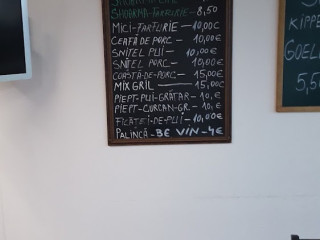 SHOARMA-FARFURIE- 8,50
MICI-FARFURIE- 10,00€
CEAFĂ DE PORC - 10,00€
SNIȚEL PUI - 10,00€
SNIȚEL PORC - 10,00€
COASTĂ-DE-PORC- 15,00€
MIX GRIL - 15,00€
PIEPT-PUI-GRĂTAR-10,€
PIEPT-CURCAN-GR.-10,€
FICĂȚEI-DE-PUI-10,00€
PALINCĂ-BE VIN-4€
KIPPE
5,5